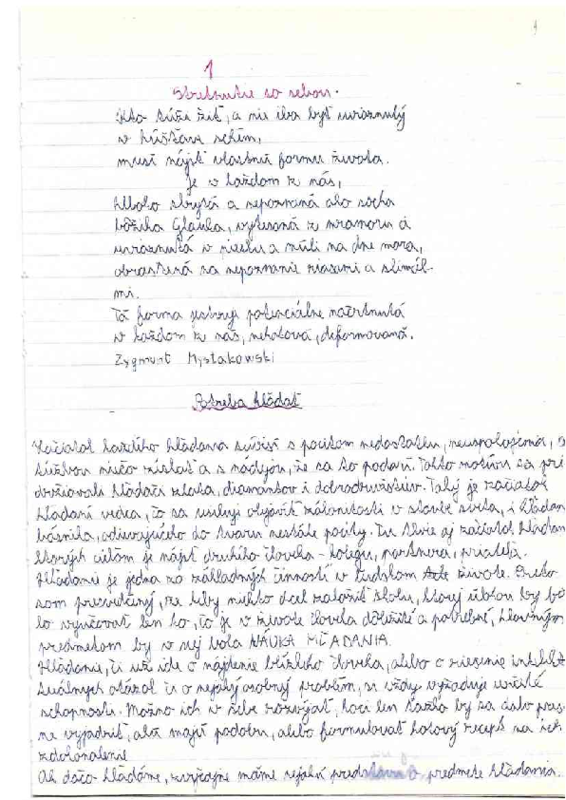 1
Stretnutie so sebou.
Kto túži žiť, a nie iba byť uviaznutý
v húštave schém,
musí nájsť vlastnú formu života.
Je v každom z nás,
hlboko skrytá a nepoznaná ako socha
bôžika Glauka, vytesaná z mramoru a
uviaznutá v piesku a múli na dne mora,
obrastená na nepoznanie riasami a slimák-
mi.
Tá forma jestvuje potenciálne načrtnutá
v každom z nás, nehotová, deformovaná.
Zygmunt Mysłakowski
Potreba hľadať
Začiatok každého hľadania súvisí s pocitom nedostatku, neuspokojenia, s
túžbou niečo získať a s nádejou, že sa to podarí. Takto motívu sa pri
držiavali hľadači zlata, diamantov i dobrodružstiev. Taký je začiatok
hľadaní vedca, čo sa usiluje objaviť zákonitosti v stavbe sveta, i hľadan
básnika, odievajúceho do tvarov nestále pocity. Tu tkvie aj začiatok hľadan
ktorých cieľom je nájsť druhého človeka - kolegu, partnera, priateľa.
Hľadanie je jedna zo základných činností v ľudskom živote. Preto
som presvedčený, že keby niekto chcel založiť školu, ktorej úlohou by bo
lo vyučovať len to, čo je v živote človeka dôležité a potrebné, hlavným
predmetom by v nej bola NÁUKA HĽADANIA.
Hľadanie, či už ide o nájdenie blízkeho človeka, alebo o riešenie intelek
tuálnych otázok či o nejaký osobný problém, si vždy vyžaduje určité
schopnosti. Možno ich v sebe rozvíjať, hoci len ťažko by sa dalo pres
ne vyjadriť, akú majú podobu, alebo formulovať hotový recept na ich
zdokonalenie
Ak dačo hľadáme, zvyčajne máme nejakú predstavu o predmete hľadania.